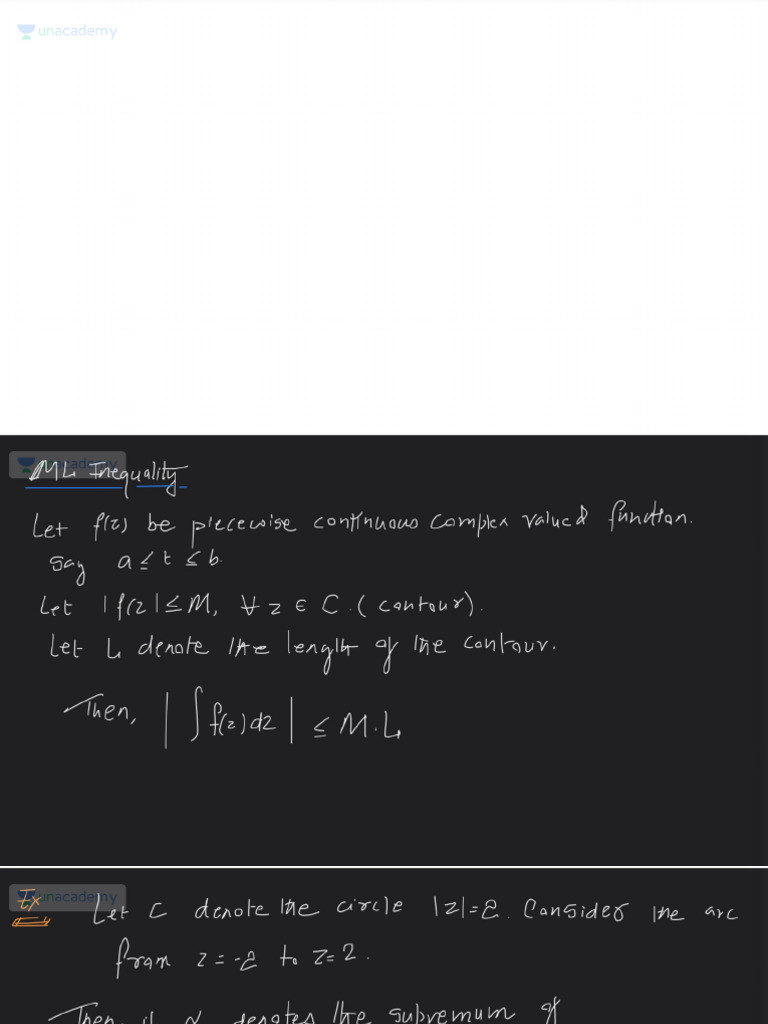 unacademy
ML Inequality
Let f(z) be piecewise continuous complex valued function.
say a ≤ t ≤ b.
Let |f(z)| ≤ M, ∀ z ∈ C. (contour).
Let L denote the length of the contour.
Then, | ∫ f(z) dz | ≤ M.L
unacademy
Ex Let C denote the circle |z|=2. Consider the arc
from z = -2 to z = 2.
Then if α denotes the supremum of